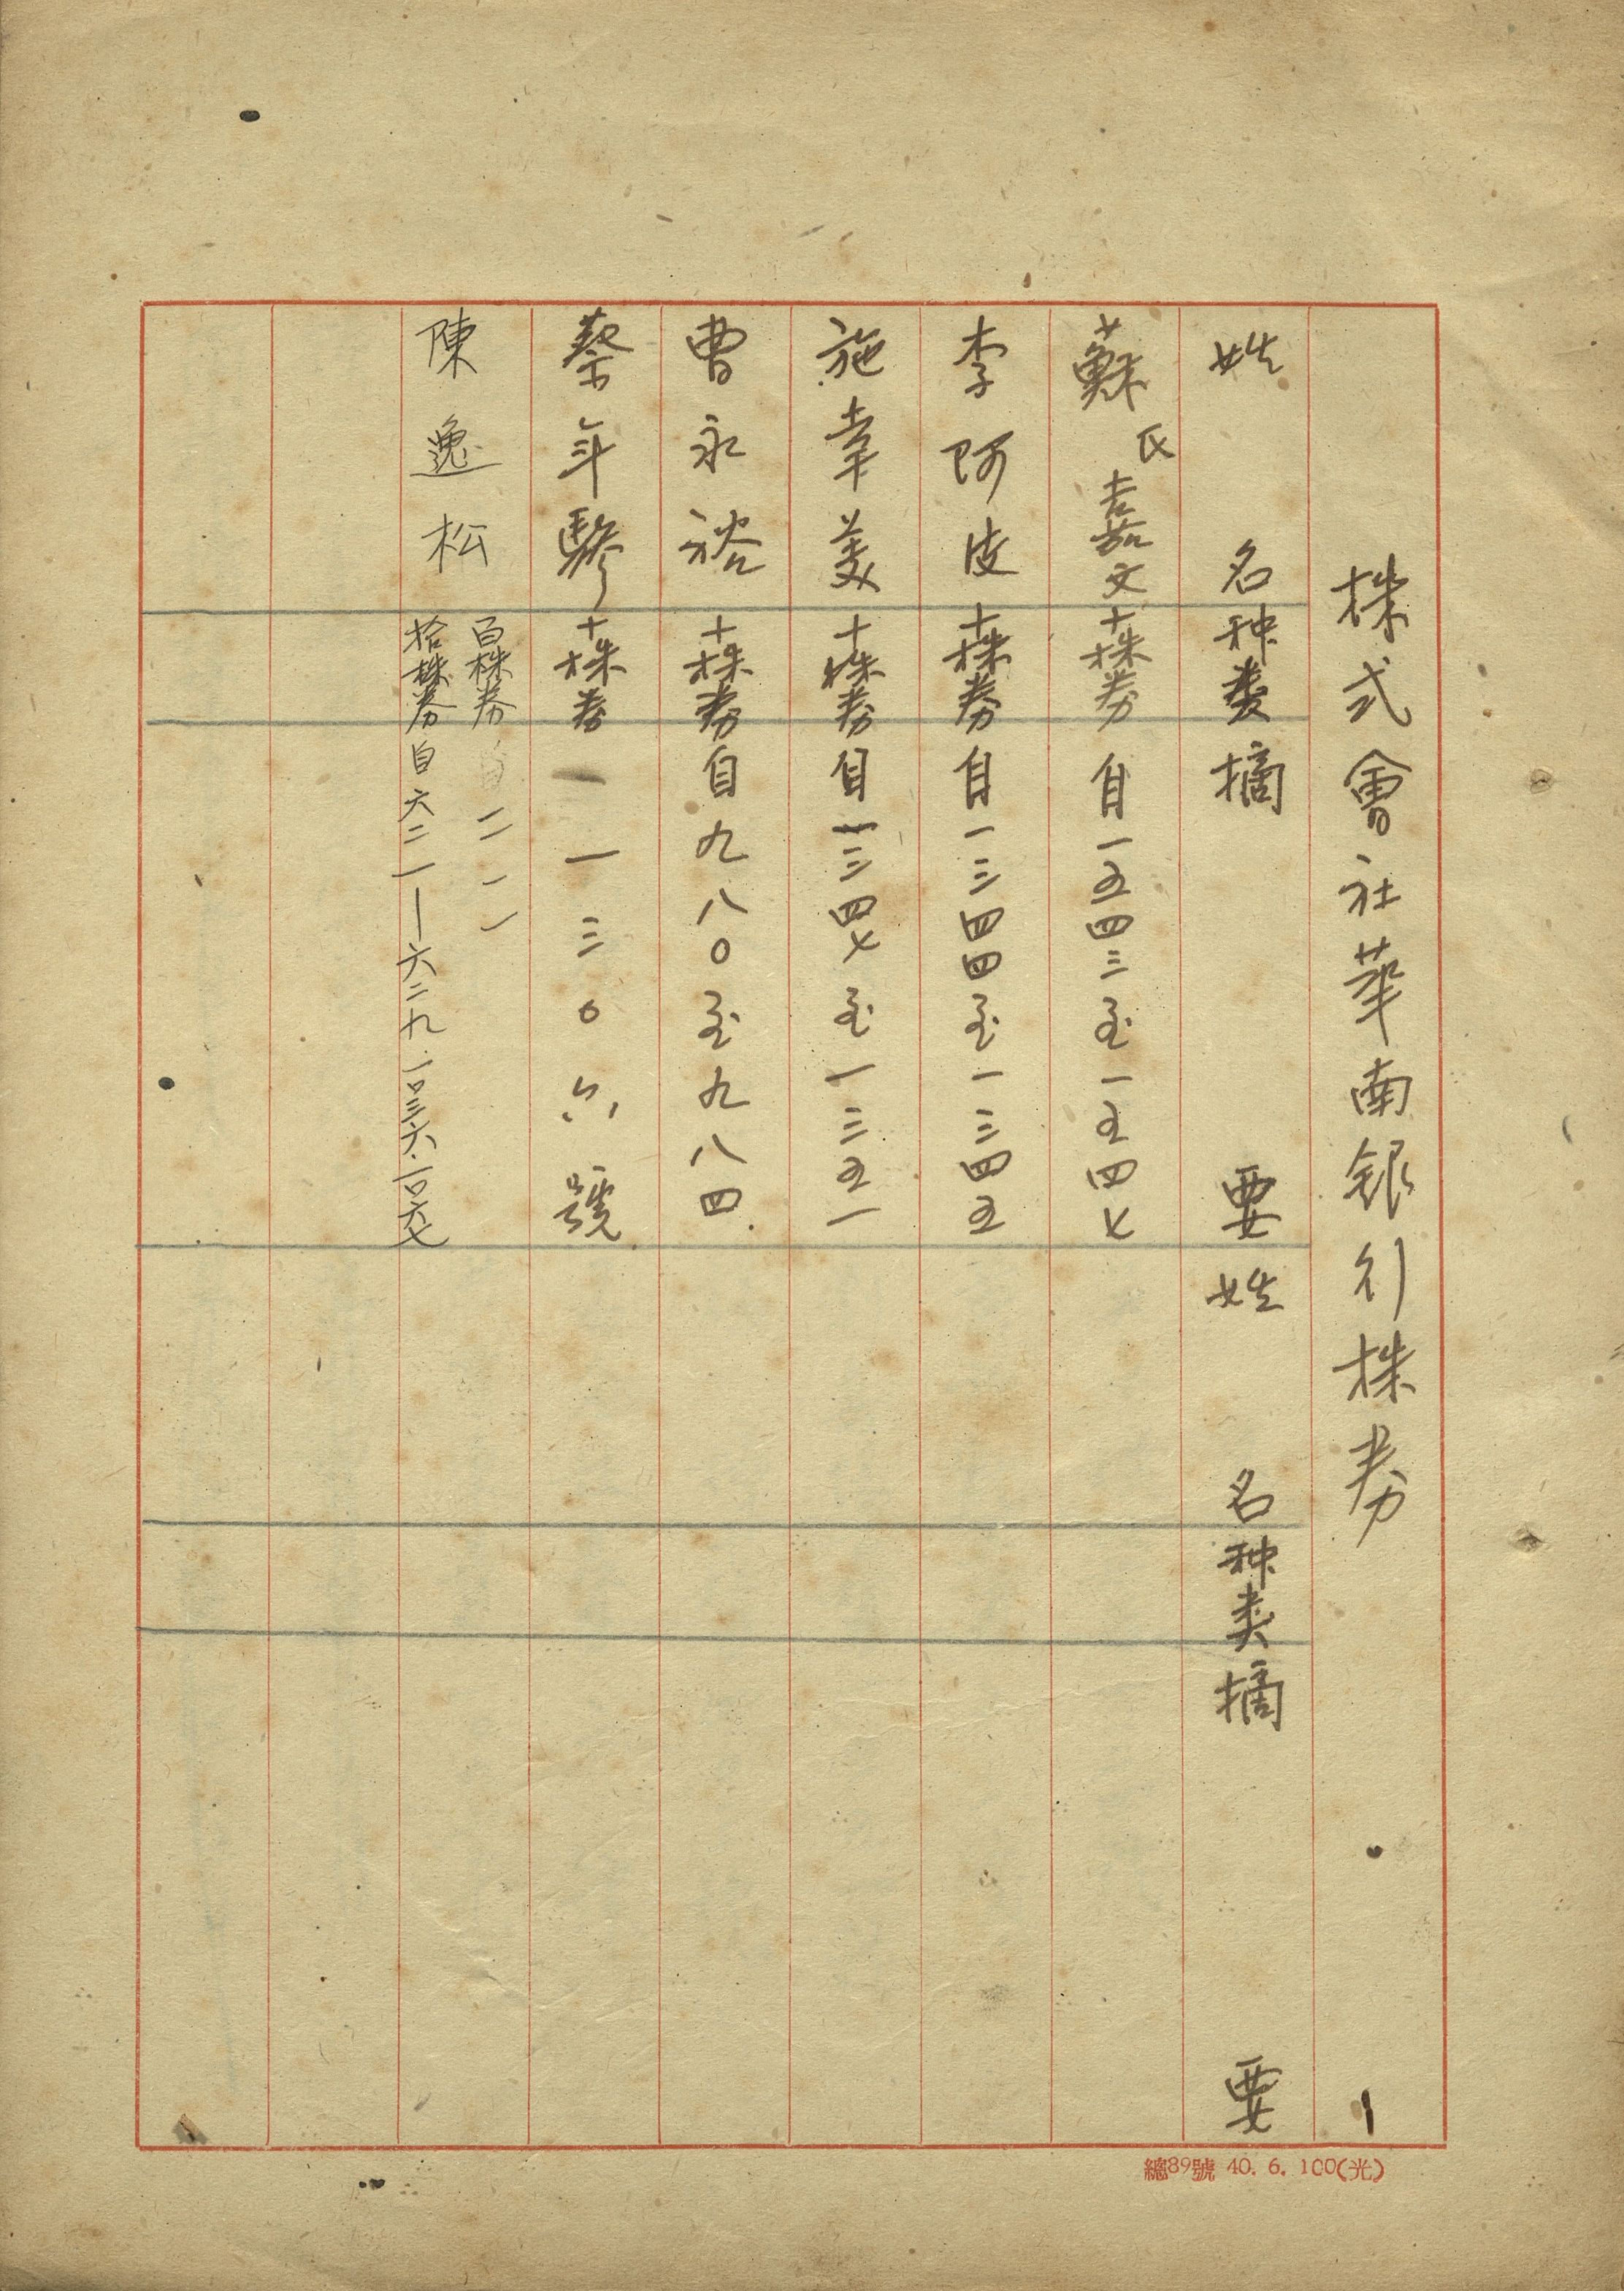 株式會社華南銀行株券 1
姓名 种类 摘要 姓名 种类 摘要
蘇氏嘉文 十株券 自一五四三至一五四七
李阿皮 十株券 自一三四四至一三四五
施幸美 十株券 自一三四七至一三五一
曹永裕 十株券 自九八〇至九八四
蔡年 十株券 一一三〇六號
陳逸松 百株券 自二一一
拾株券 自六二一—六二九.一〇三六.一〇六七
總89號 40. 6. 100(光)